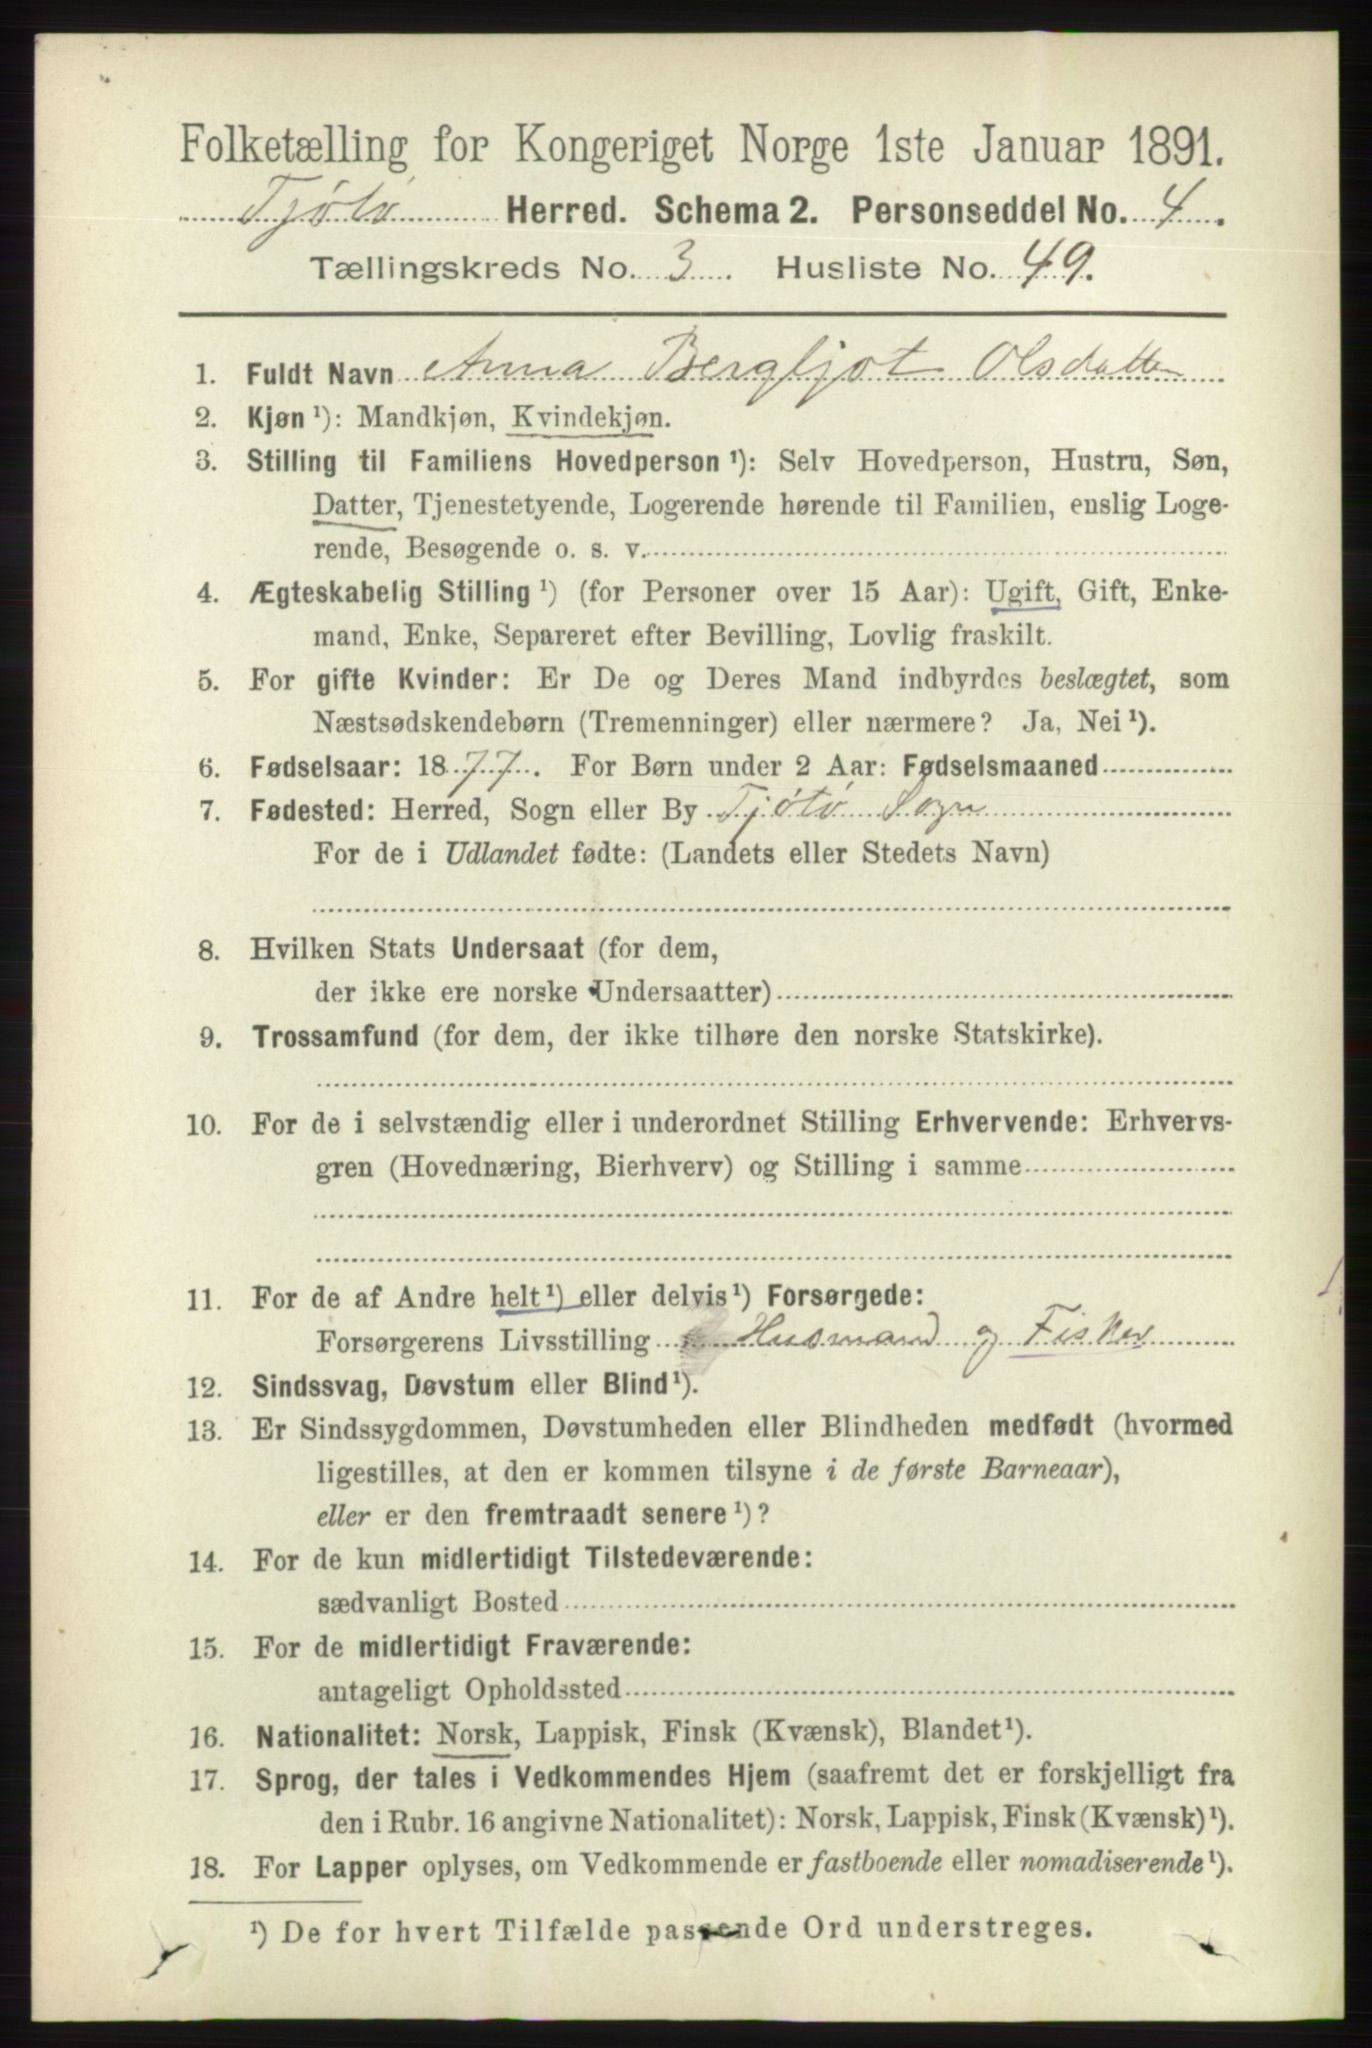 Folketælling for Kongeriget Norge 1ste Januar 1891.
Tjötö Herred. Schema 2. Personseddel No. 4.
Tællingskreds No. 3. Husliste No. 49.
1. Fuldt Navn Anna Bergljot Olsdatter
2. Kjøn ¹): Mandkjøn, Kvindekjøn.
3. Stilling til Familiens Hovedperson ¹): Selv Hovedperson, Hustru, Søn,
Datter, Tjenestetyende, Logerende hørende til Familien, enslig Loge-
rende, Besøgende o. s. v.
4. Ægteskabelig Stilling ¹) (for Personer over 15 Aar): Ugift, Gift, Enke-
mand, Enke, Separeret efter Bevilling, Lovlig fraskilt.
5. For gifte Kvinder: Er De og Deres Mand indbyrdes beslægtet, som
Næstsødskendebørn (Tremenninger) eller nærmere? Ja, Nei ¹).
6. Fødselsaar: 1877. For Børn under 2 Aar: Fødselsmaaned
7. Fødested: Herred, Sogn eller By Tjötö Sogn
For de i Udlandet fødte: (Landets eller Stedets Navn)
8. Hvilken Stats Undersaat (for dem,
der ikke ere norske Undersaatter)
9. Trossamfund (for dem, der ikke tilhøre den norske Statskirke).
10. For de i selvstændig eller i underordnet Stilling Erhvervende: Erhvervs-
gren (Hovednæring, Bierhverv) og Stilling i samme
11. For de af Andre helt ¹) eller delvis ¹) Forsørgede:
Forsørgerens Livsstilling Husmand og Fisker
12. Sindssvag, Døvstum eller Blind ¹).
13. Er Sindssygdommen, Døvstumheden eller Blindheden medfødt (hvormed
ligestilles, at den er kommen tilsyne i de første Barneaar),
eller er den fremtraadt senere ¹)?
14. For de kun midlertidigt Tilstedeværende:
sædvanligt Bosted
15. For de midlertidigt Fraværende:
antageligt Opholdssted
16. Nationalitet: Norsk, Lappisk, Finsk (Kvænsk), Blandet ¹).
17. Sprog, der tales i Vedkommendes Hjem (saafremt det er forskjelligt fra
den i Rubr. 16 angivne Nationalitet): Norsk, Lappisk, Finsk (Kvænsk) ¹).
18. For Lapper oplyses, om Vedkommende er fastboende eller nomadiserende ¹).
¹) De for hvert Tilfælde passende Ord understreges.